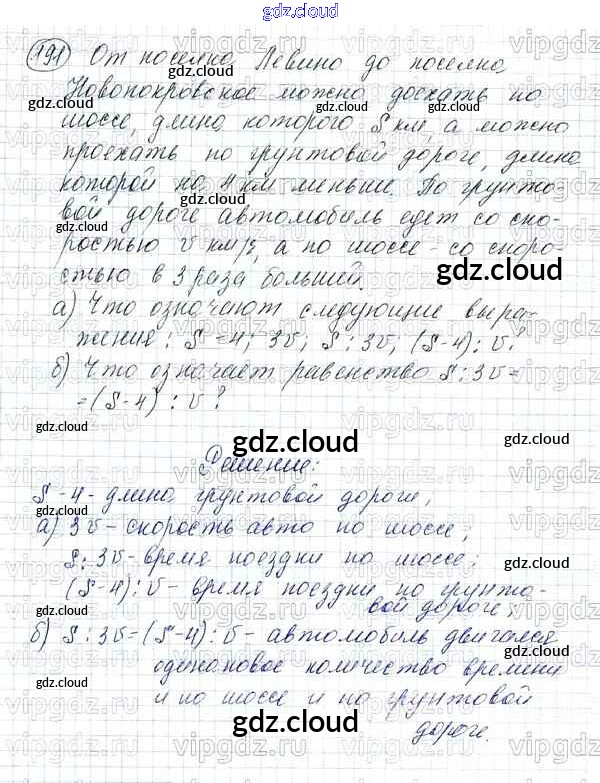 gdz.cloud
191 От поселка Левино до поселка
Новопокровское можно доехать по
шоссе, длина которого S км, а можно
проехать по грунтовой дороге, длина
которой на 4 км меньше. По грунто-
вой дороге автомобиль едет со ско-
ростью v км/ч, а по шоссе - со скоро-
стью в 3 раза большей.
а) Что означают следующие выра-
жения: S = 4; 3v; S : 3v; (S-4) : v?
б) Что означает равенство S : 3v =
= (S-4) : v?
Решение:
S - 4 - длина грунтовой дороге,
а) 3v - скорость авто по шоссе;
S : 3v - время поездки по шоссе;
(S-4) : v - время поездки по грунто-
вой дороге;
б) S : 3v = (S-4) : v - автомобиль двигался
одинаковое количество времени
и по шоссе и по грунтовой
дороге.
gdz.cloud
gdz.cloud
gdz.cloud
gdz.cloud
gdz.cloud
gdz.cloud
gdz.cloud
gdz.cloud
gdz.cloud
gdz.cloud
gdz.cloud
gdz.cloud
gdz.cloud